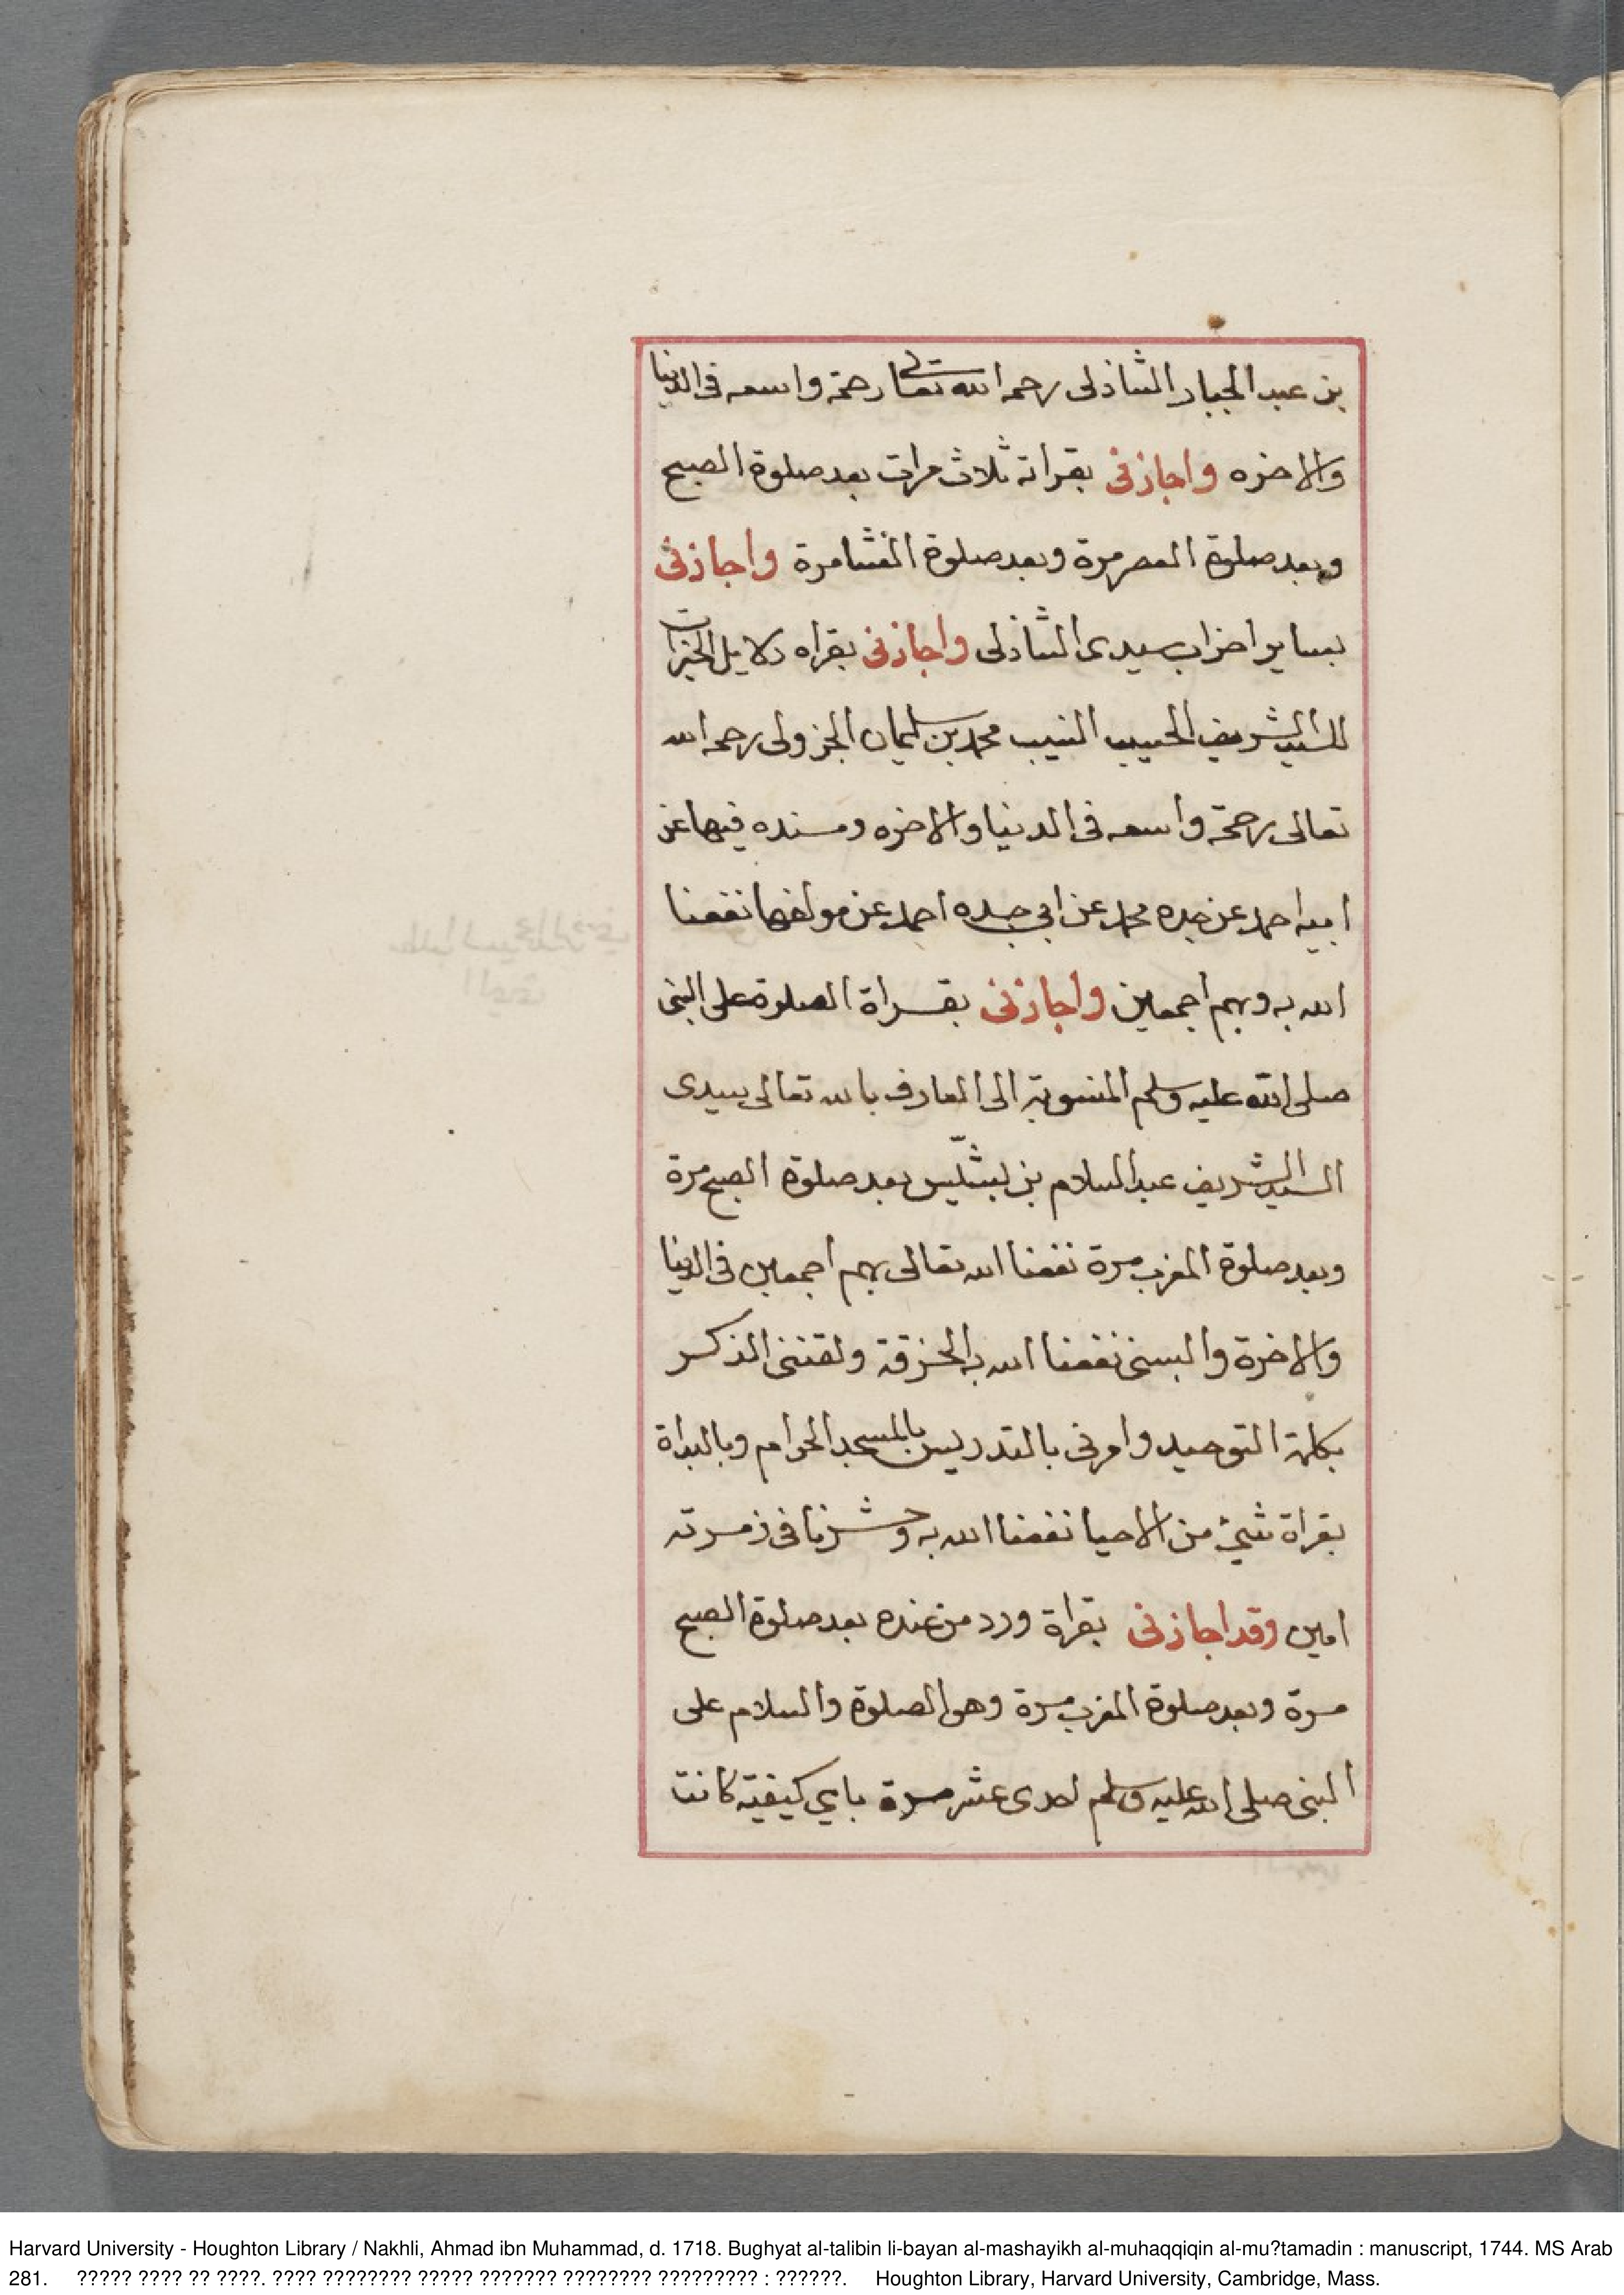 بن عبد الجبار الشاذلى رحمه الله تعالى رحمة واسعه فى الدنيا
والاخره واجازنى بقراته ثلاث مرات بعد صلوة الصبح
وبعد صلوة العصر مرة وبعد صلوة العشا مرة واجازنى
بساير احزاب سيدى الشاذلى واجازنى بقراه دلايل الخيرات
للسيد الشريف الحسيب النسيب محمد بن سليمان الجزولى رحمه الله
تعالى رحمة واسعه فى الدنيا والاخره ومسنده فيها عن
ابيه احمد عن جده محمد عن ابى جده احمد عن مولفها نفعنا
الله به وبهم اجمعين واجازنى بقراة الصلوة على النبى
صلى الله عليه وسلم المنسوبة الى العارف بالله تعالى سيدى
السيد الشريف عبد السلام بن بشيش بعد صلوة الصبح مرة
وبعد صلوة المغرب مرة نفعنا الله تعالى بهم اجمعين فى الدنيا
والاخرة والبسنى نفعنا الله به الخرقة ولقننى الذكر
بكلمة التوحيد وامرنى بالتدريس بالمسجد الحرام وبالبداة
بقراة شيئ من الاحيا نفعنا الله به وحشرنا فى زمرته
امين وقد اجازنى بقراة ورد من عنده بعد صلوة الصبح
مرة وبعد صلوة المغرب مرة وهو الصلوة والسلام على
النبى صلى الله عليه وسلم احدى عشر مرة باي كيفية كانت
Harvard University - Houghton Library / Nakhli, Ahmad ibn Muhammad, d. 1718. Bughyat al-talibin li-bayan al-mashayikh al-muhaqqiqin al-mu?tamadin : manuscript, 1744. MS Arab
281. ????? ???? ?? ????. ???? ???????? ????? ??????? ???????? ????????? : ??????. Houghton Library, Harvard University, Cambridge, Mass.